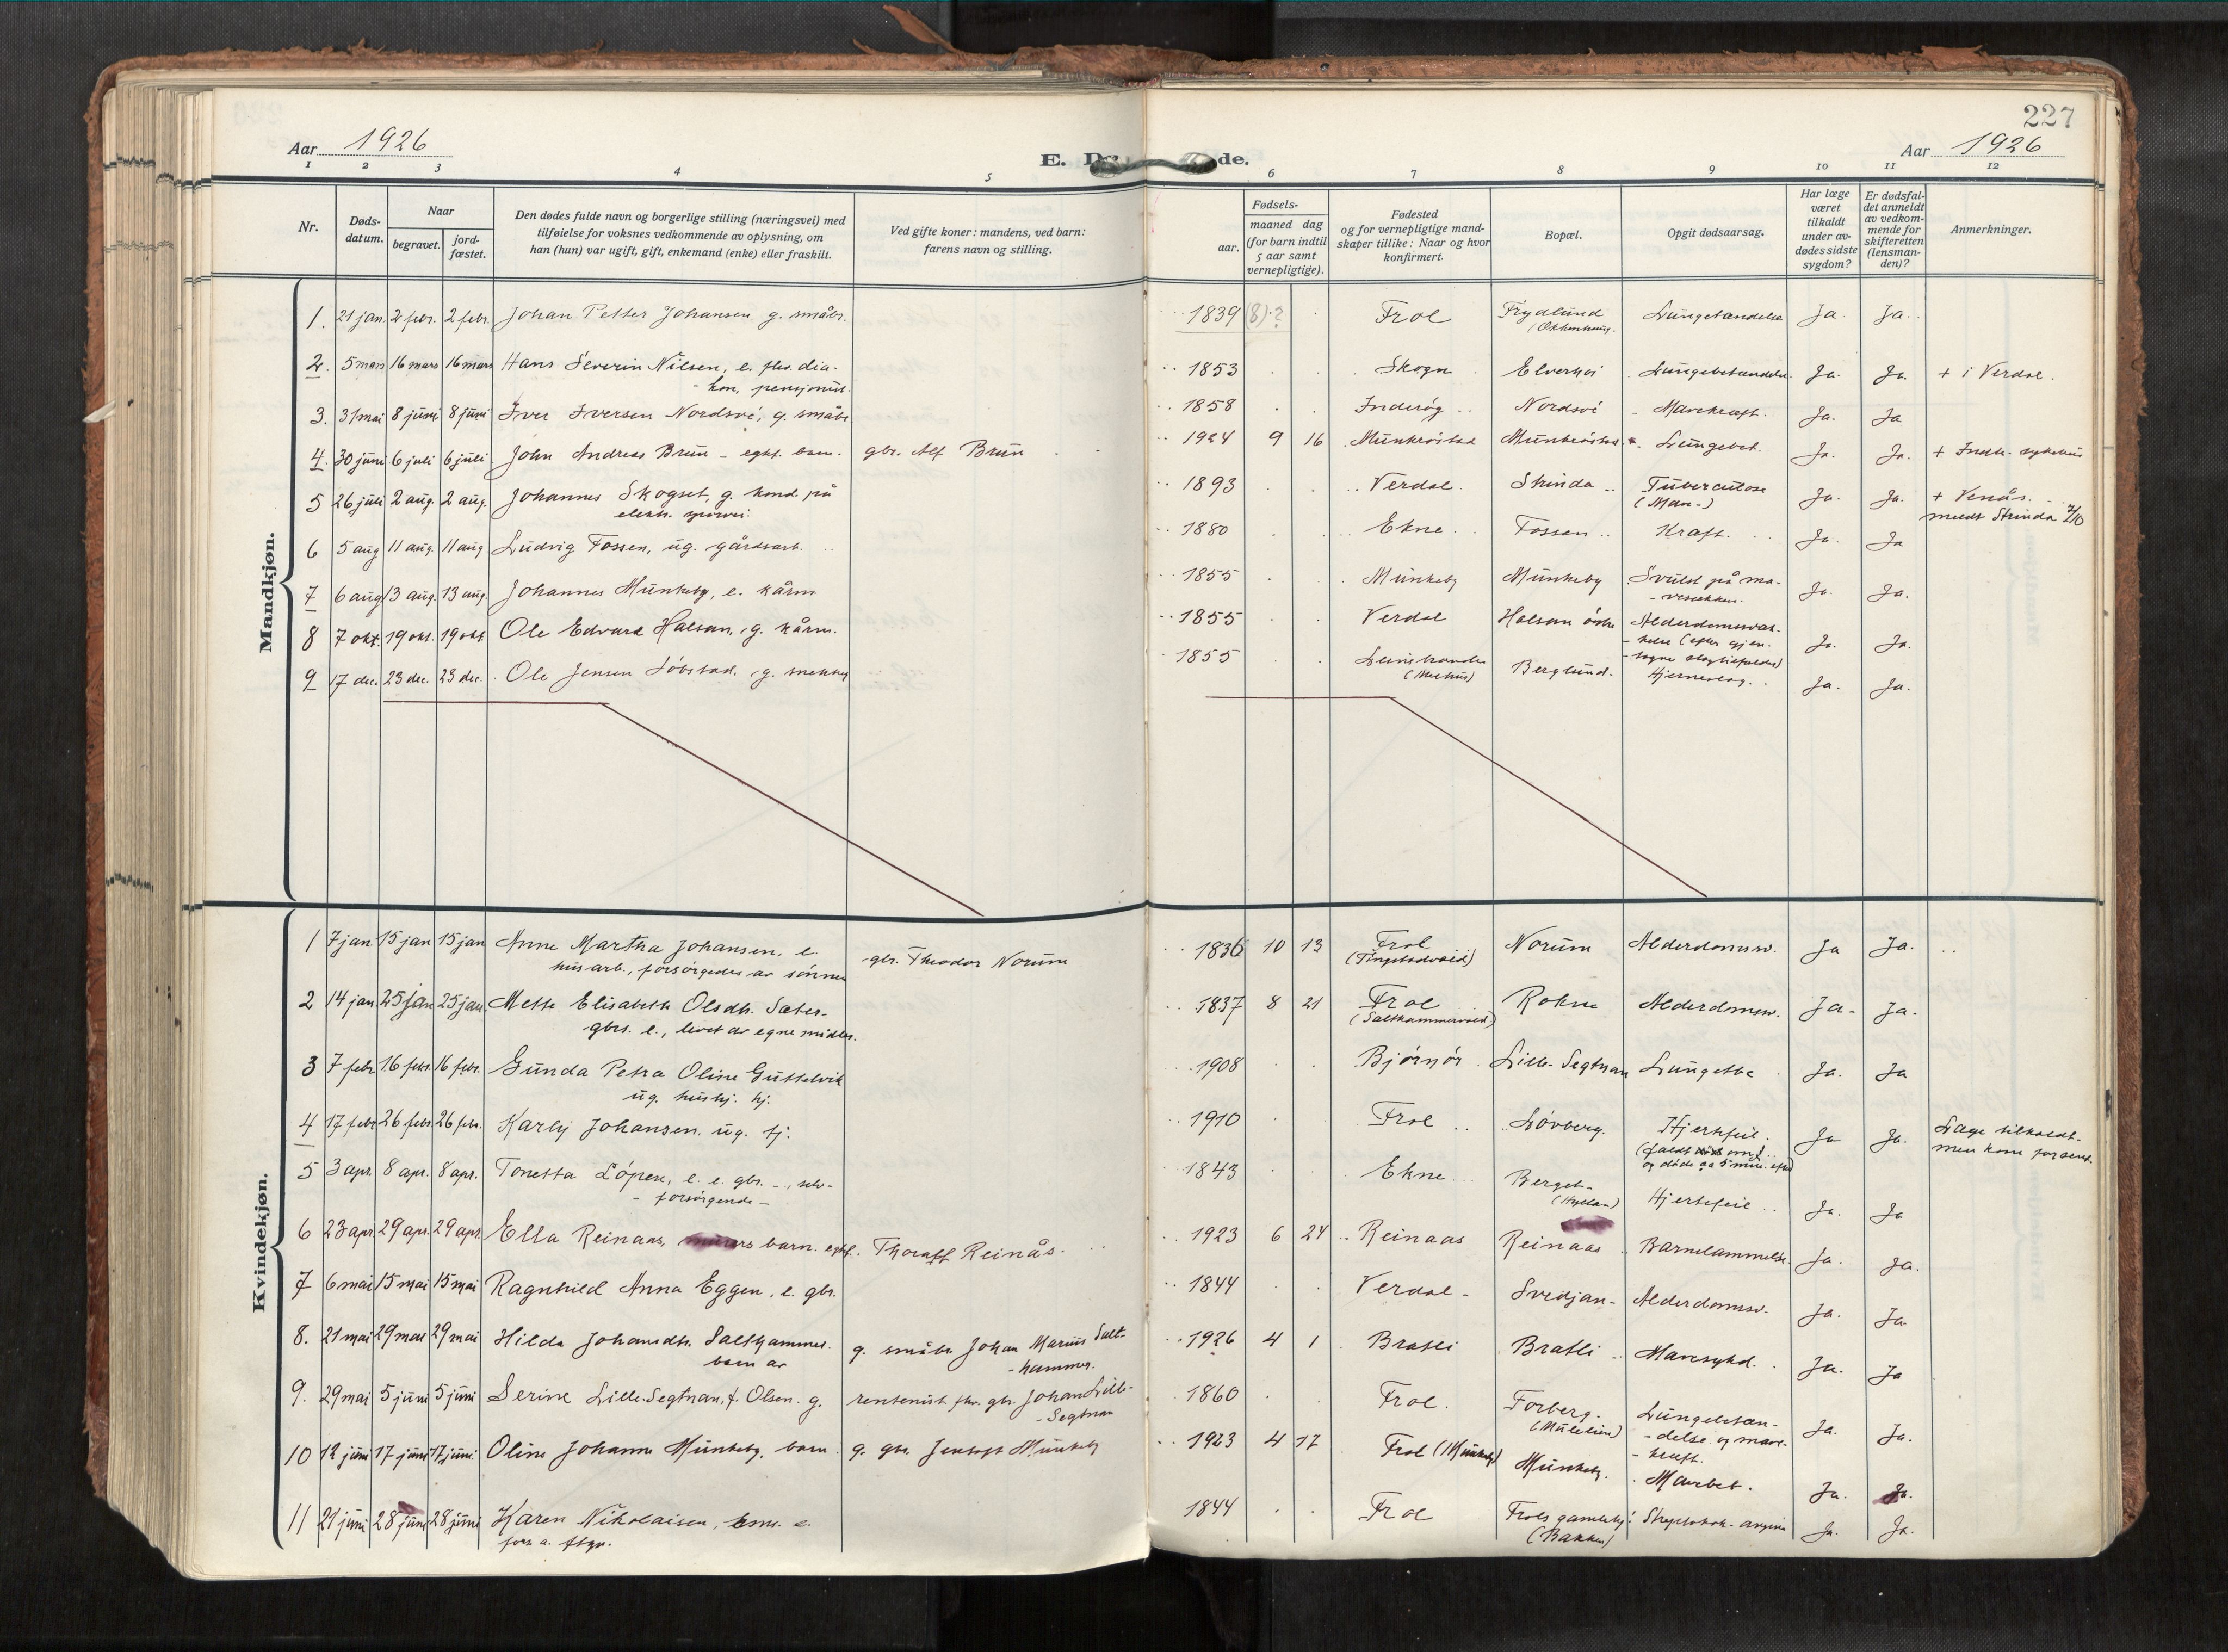 227
Aar 1926
E. Dø de.
Aar 1926
1 2 3 4 5 6 7 8 9 10 11 12
Nr.
Døds-
datum.
Naar
begravet.
jord-
fæstet.
Den dødes fulde navn og borgerlige stilling (næringsvei) med
tilføielse for voksnes vedkommende av oplysning, om
han (hun) var ugift, gift, enkemand (enke) eller fraskilt.
Ved gifte koner: mandens, ved barn:
farens navn og stilling.
Fødsels-
aar.
maaned dag
(for barn indtil
5 aar samt
vernepligtige).
Fødested
og for vernepligtige mand-
skaper tillike: Naar og hvor
konfirmert.
Bopæl.
Opgit dødsaarsag.
Har læge
været
tilkaldt
under av-
dødes sidste
sygdom?
Er dødsfal-
det anmeldt
av vedkom-
mende for
skifteretten
(lensman-
den)?
Anmerkninger.
Mandkjøn.
1. 21 jan. 2 febr. 2 febr. Johan Petter Johansen g. småbr. 1839 (8)? Frol Frydlund Lungetændelse Ja. Ja.
2. 5 mars 16 mars 16 mars Hans Severin Nilsen, e. fhv. dia- 1853 Skogn Elverhøi Lungebetændelse Ja. Ja. + i Verdal.
- kon, pensjonist.
3. 31 mai 8 juni 8 juni Iver Iversen Nordsve, g. småbr 1858 Inderøy Nordsve Mavekræft. Ja. Ja
4. 30 juni 6 juli 6 juli John Andreas Brun - egtf. barn. gbr. Alf Brun 1924 9 16 Munkrøstad Munkrøstad Lungebet. Ja. Ja. + Indh. sykehus
5 26 juli 2 aug. 2 aug. Johannes Skogset, g. kond. på 1893 Verdal. Strinda Tuberculose Ja. Ja. + Venås.
elektr. sporvei. (Mave-) meldt Strinda 7/10
6 5 aug 11 aug. 11 aug Ludvig Fossen, ug. gårdsarb. 1880 Ekne Fossen Kræft. Ja. Ja
7 6 aug 13 aug. 13 aug. Johannes Munkeby, e. kårm 1855 Munkeby Munkeby Svulst på ma- Ja. Ja.
- vesekken.
8 7 okt. 19 okt. 19 okt Ole Edvard Halsan, g. kårm. 1855 Verdal Halsan østre Alderdomssvak- Ja. Ja.
- helse (efter gjen-
- tagne slagtilfælder)
9 17 dec. 23 dec. 23 dec. Ole Jensen Løbstad, g. snekker 1855 Leinstranden Berglund. Hjerneslag. Ja. Ja.
Kvindekjøn.
1 7 jan 15 jan 15 jan Anne Martha Johansen, e. gbr. Theodor Norum 1836 10 13 Frol Norum Alderdomssv. Ja Ja.
husarb., forsørgedes av sønnen
2 14 jan 25 jan 25 jan. Mette Elisabeth Olsdtr. Sæter- 1837 8 21 Frol Rokne Alderdomssv. Ja - Ja.
gbrs. e., levet av egne midler. (Salthammervald)
3 7 febr 16 febr. 16 febr. Gunda Petra Oline Guttelvik 1908 Bjørnør Lille-Segtnan Lungetbc Ja. Ja
ug. hushj. tj.
4 17 febr 26 febr 26 febr. Karly Johansen, ug. tj. 1910 Frol Løvberg. Hjertefeil. Ja Ja. Læge tilkaldt.
(faldt om og døde ca 5 min. efter) men kom for sent.
5 3 apr. 8 apr. 8 apr. Tonetta Løpen, e. e. gbr. -, selv- 1843 Ekne Berget- Hjertefeil Ja. Ja
- forsørgende - (Hyllan)
6 23 apr. 29 apr. 29 apr Ella Reinaas, barn. egtf. Thoralf Reinås. 1923 6 24 Reinaas Reinaas Barnelammelse Ja. Ja.
7 6 mai 15 mai 15 mai Ragnhild Anna Eggen, e. gbr. 1844 Verdal - Svedjan - Alderdomssv. Ja. Ja.
8. 21 mai 29 mai 29 mai Hilda Johansdtr. Salthammer. g. småbr. Johan Marius Salt- 1926 4 1 Bratli Bratli Mavesykd. Ja. Ja
barn av - hammer.
9. 29 mai 5 juni 5 juni Serine Lille-Segtnan, f. Olsen. g. rentenist fhv. gbr. Johan Lille- 1860 Frol. Forberg. Lungebetæn- Ja. Ja.
- Segtnan - delse og mave-
- kræft.
10 12 juni 17 juni 17 juni. Oline Johanne Munkeby, barn g. gbr. Jentoft Munkeby 1923 4 17 Frol (Munkeby) Munkeby. Mavebet. Ja. Ja.
11 21 juni 28 juni 28 juni Karen Nikolaisen, e. 1844 Frol Frols gamlehj. Streptokok-angina Ja. Ja.
fors. a. ftgv. (Bakken)